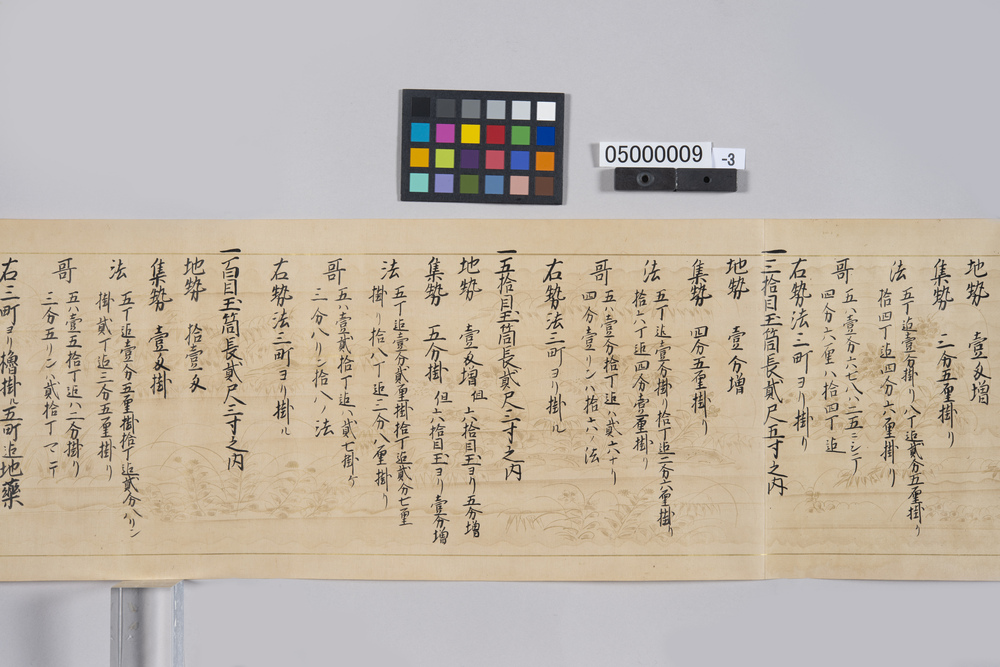 05000009
-3
地勢　壹匁増
集勢　三分五厘掛リ
法　五丁迠壹分掛リ八丁迠貳分五厘掛リ
拾四丁迠四分六厘掛リ
哥　五ハ壹分ハ七八ハ二五ニシ一丁
四分六厘ハ拾四丁迠
右勢法三町ヨリ掛リ
一三拾目玉筒長貳尺五寸之内
地勢　壹分増
集勢　四分五厘掛リ
法　五丁迠壹分掛リ拾丁迠二分六厘掛リ
拾六丁迠四分壹厘掛リ
哥　五ハ壹分拾丁迠ハ貳六ナリ
四分壹リンハ拾六ノ法
右勢法三町ヨリ掛ル
一五拾目玉筒長貳尺三寸之内
地勢　壹匁増　但シ六拾目玉ヨリ五分増
集勢　五分掛　但シ六拾目玉ヨリ壹分増
法　五丁迠壹分貳厘掛拾丁迠貳分七厘
掛リ拾八丁迠三分八厘掛リ
哥　五ハ壹貳拾丁迠ハ貳七掛ケ
三分八リン拾八ノ法
右勢法三町ヨリ掛ル
一百目玉筒長貳尺三寸之内
地勢　拾壹匁
集勢　壹匁掛
法　五丁迠壹分五厘掛拾丁迠貳分八リン
掛貳丁迠三分五厘掛リ
哥　五ハ壹五拾丁迠ハ二分掛リ
三分五リン貳拾丁マテ
右三町ヨリ櫓掛ル五町迠地藥